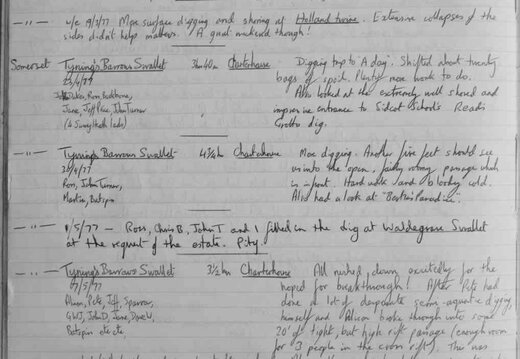 —"— w/e 19/3/77 More surface digging and shoring of Holland twine. Extensive collapses of the
sides didn't help matters. A great weekend though!
Somerset Tynings Barrows Swallet 3hr 40m Charterhouse Digging trip to A day. Shifted about twenty
23/4/77 bags of spoil. Plenty more work to do.
Jeff Price, John Turner Also looked at the extremely well shored and
impressive entrance to Sidcot School's Reads
Grotto dig.
—"— Tynings Barrows Swallet 4¾hr Charterhouse More digging. Another five feet should see
us into the open, passage which
Ross, John Turner, is in front. Hard work and bloody cold.
Martin, Batspin Also had a look at
—"— 1/5/77 — Ross, Chris B, John T and I filled in the dig at Waldegrave Swallet
at the request of the estate. Pity.
—"— Tynings Barrows Swallet 3½hr Charterhouse All rushed down excitedly for the
7/5/77 hoped for breakthrough! After Pete had
Alison, Pete, Jeff, Sparrow, done a lot of desperate semi-aquatic digging
GWJ, John D, June, Dave W, himself and Alison broke through into some
Batspin etc etc. 20' of tight, but high rift passage (enough room
for 3 people in the cross rift). This was